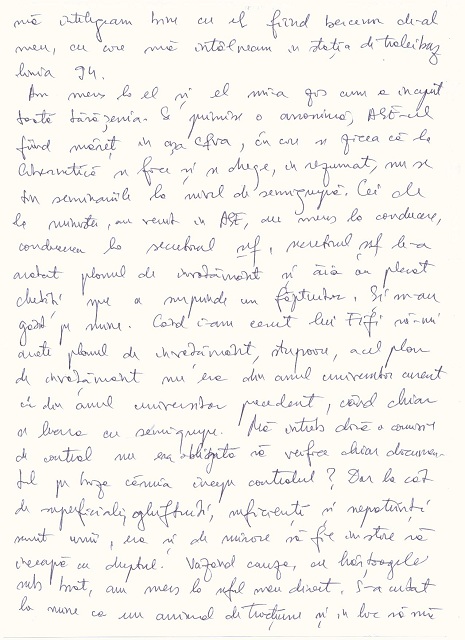 mă înțelegeam bine cu el fiind berceian de-al
meu, cu care mă întâlneam în stația de troleibuz
linia 94.
Am mers la el și el mi-a zis cum a început
toată tărășenia. Se primise o anonimă, ASE-ul
fiind măreț în așa ceva, în care se zicea că la
Cibernetică se face și se drege, în rezumat, nu se
țin seminariile la nivel de semigrupă. Cei de
la minister, au venit în ASE, au mers la conducere,
conducerea la secretarul șef, secretarul șef le-a
arătat planul de învățământ și ăia au plecat
chitiți pe a surprinde un făptuitor. Și m-au
găsit pe mine. Când i-am cerut lui Fifi să-mi
arate planul de învățământ, stupoare, acel plan
de învățământ nu era din anul universitar curent
ci din anul universitar precedent, când chiar
se lucra cu semigrupe. Mă întreb dacă o comisie
de control nu era obligată să verifice chiar documen-
tul pe baza căruia începe controlul? Dar la cât
de superficiali, aghiftuiți, suficienți și nepotriviți
sunt unii, era și de mirare să fie în stare să
înceapă cu dreptul. Văzând cauza, cu hârțoagele
sub braț, am mers la șeful meu direct. S-a uitat
la mine ca un animal de tracțiune și în loc să mă